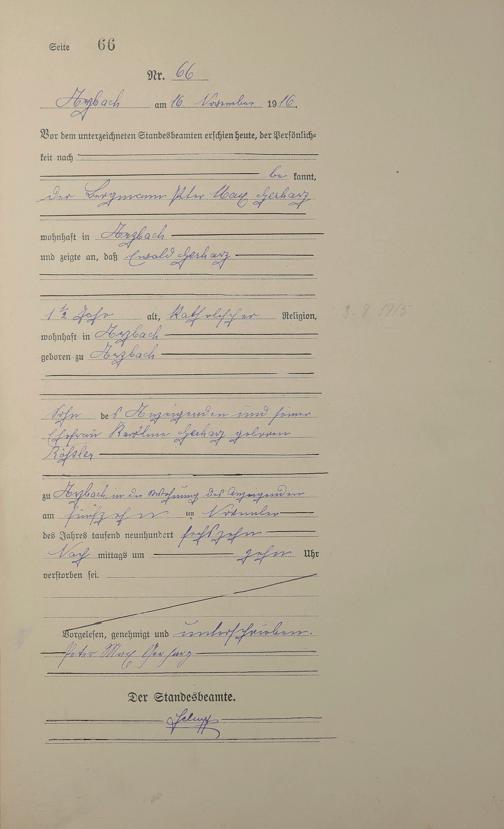 Seite 66
Nr. 66
Arzbach am 16 November 1916.
Vor dem unterzeichneten Standesbeamten erschien heute, der Persönlich-
keit nach
be kannt,
der Bergmann Peter Max Gerharz
wohnhaft in Arzbach
und zeigte an, daß Ewald Gerharz
1 1/2 Jahr alt, katholischer Religion,
wohnhaft in Arzbach
geboren zu Arzbach
3-8 1915
Sohn des Anzeigenden und seiner
Ehefrau Karoline Gerharz geborenen
zu Arzbach in der Wohnung des Anzeigenden
am fünfzehn en November
des Jahres tausend neunhundert sechszehn
Nach mittags um zehn Uhr
verstorben sei.
Vorgelesen, genehmigt und unterschrieben.
Peter Max Gerharz
Der Standesbeamte.